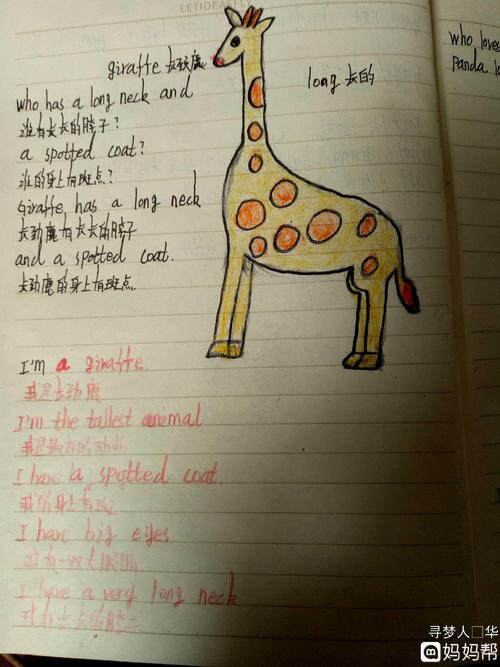 LETIDEASFLY
giraffe 长劲鹿
long 长的
who has a long neck and
谁有长长的脖子?
a spotted coat?
谁的身上有斑点?
Giraffe has a long neck
长劲鹿有长长的脖子
and a spotted coat.
长劲鹿的身上有斑点.
who loves
Panda
I'm a giraffe.
我是长劲鹿
I'm the tallest animal
我是最高的动物
I have a spotted coat.
我的身上有斑点
I have big eyes
我有一双大眼睛
I have a very long neck
我有长长的脖子
寻梦人□华
妈妈帮